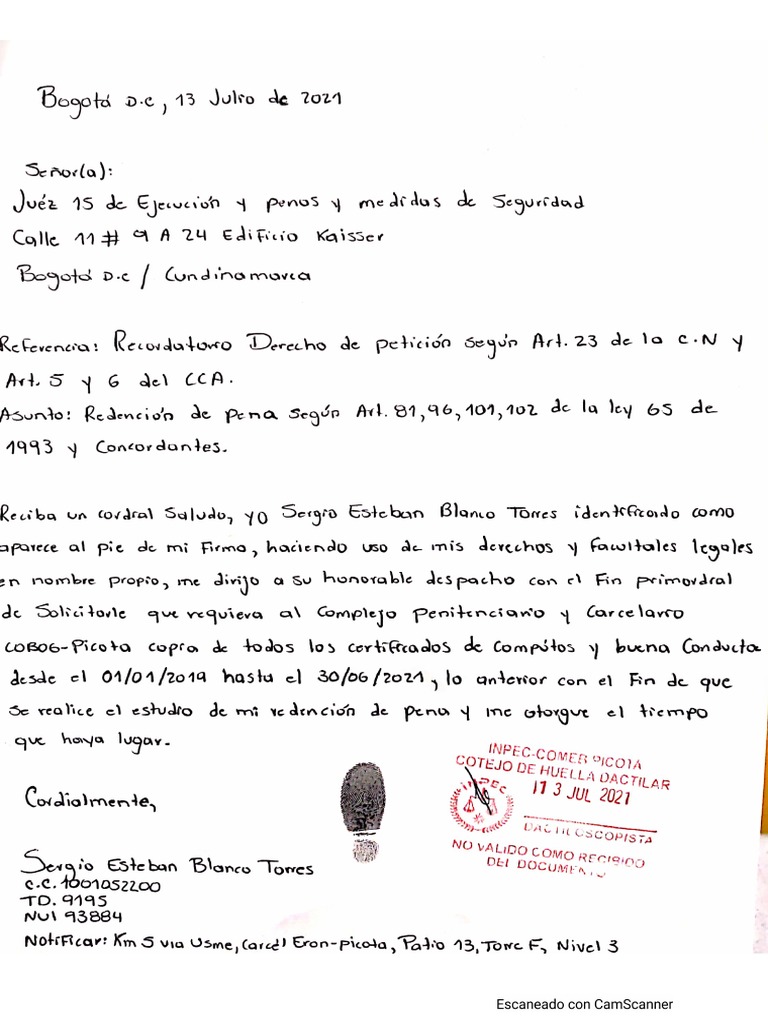 Bogotá D.C, 13 Julio de 2021
Señor(a):
Juéz 15 de Ejecución y penas y medidas de Seguridad
Calle 11 # 9 A 24 Edificio Kaisser
Bogotá D.C / Cundinamarca
Referencia: Recordatorio Derecho de petición según Art. 23 de la C.N y
Art. 5 y 6 del CCA.
Asunto: Redención de pena según Art. 81, 96, 101, 102 de la ley 65 de
1993 y Concordantes.
Reciba un cordial Saludo, yo Sergio Esteban Blanco Torres identificado como
aparece al pie de mi Firma, haciendo uso de mis derechos y facultales legales
en nombre propio, me dirijo a su honorable despacho con el Fin primordial
de Solicitarle que requiera al Complejo Penitenciario y Carcelario
COBOG-Picota copia de todos los certificados de Compútos y buena Conducta
desde el 01/01/2019 hasta el 30/06/2021, lo anterior con el Fin de que
se realice el estudio de mi redención de pena y me otorgue el tiempo
que haya lugar.
Cordialmente,
INPEC-COMEB PICOTA
COTEJO DE HUELLA DACTILAR
INPEC
13 JUL 2021
DACTILOSCOPISTA
NO VALIDO COMO RECIBIDO
DEL DOCUMENTO
Sergio Esteban Blanco Torres
C.C. 1001052200
TD. 9195
NUI 93884
Notificar: Km 5 via Usme, Carcel Eron-picota, Patio 13, Torre F, Nivel 3
Escaneado con CamScanner